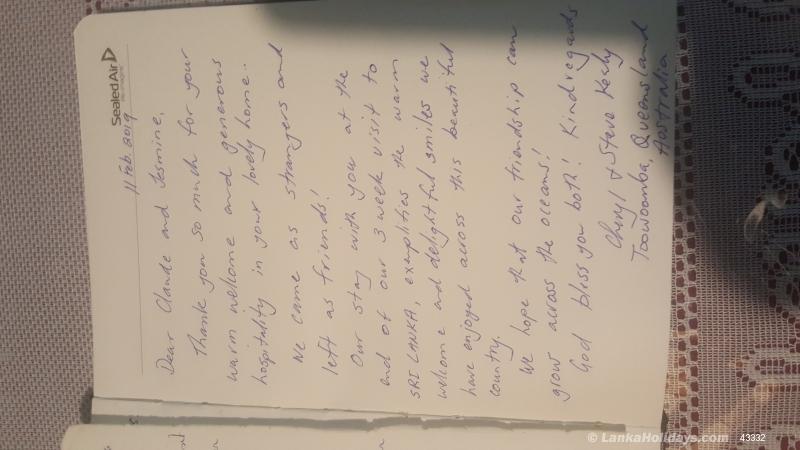 Sealed Air
11 Feb. 2019
Dear Claude and Jesmine,
Thank you so much for your
warm welcome and generous
hospitality in your lovely home.
We came as strangers and
left as friends!
Our stay with you at the
end of our 3 week visit to
SRI LANKA, exemplifies the warm
welcome and delightful smiles we
have enjoyed across this beautiful
country.
We hope that our friendship can
grow across the oceans!
God bless you both! Kind regards
Cheryl & Steve Kealy
Toowoomba, Queensland
Australia
© LankaHolidays.com
43332